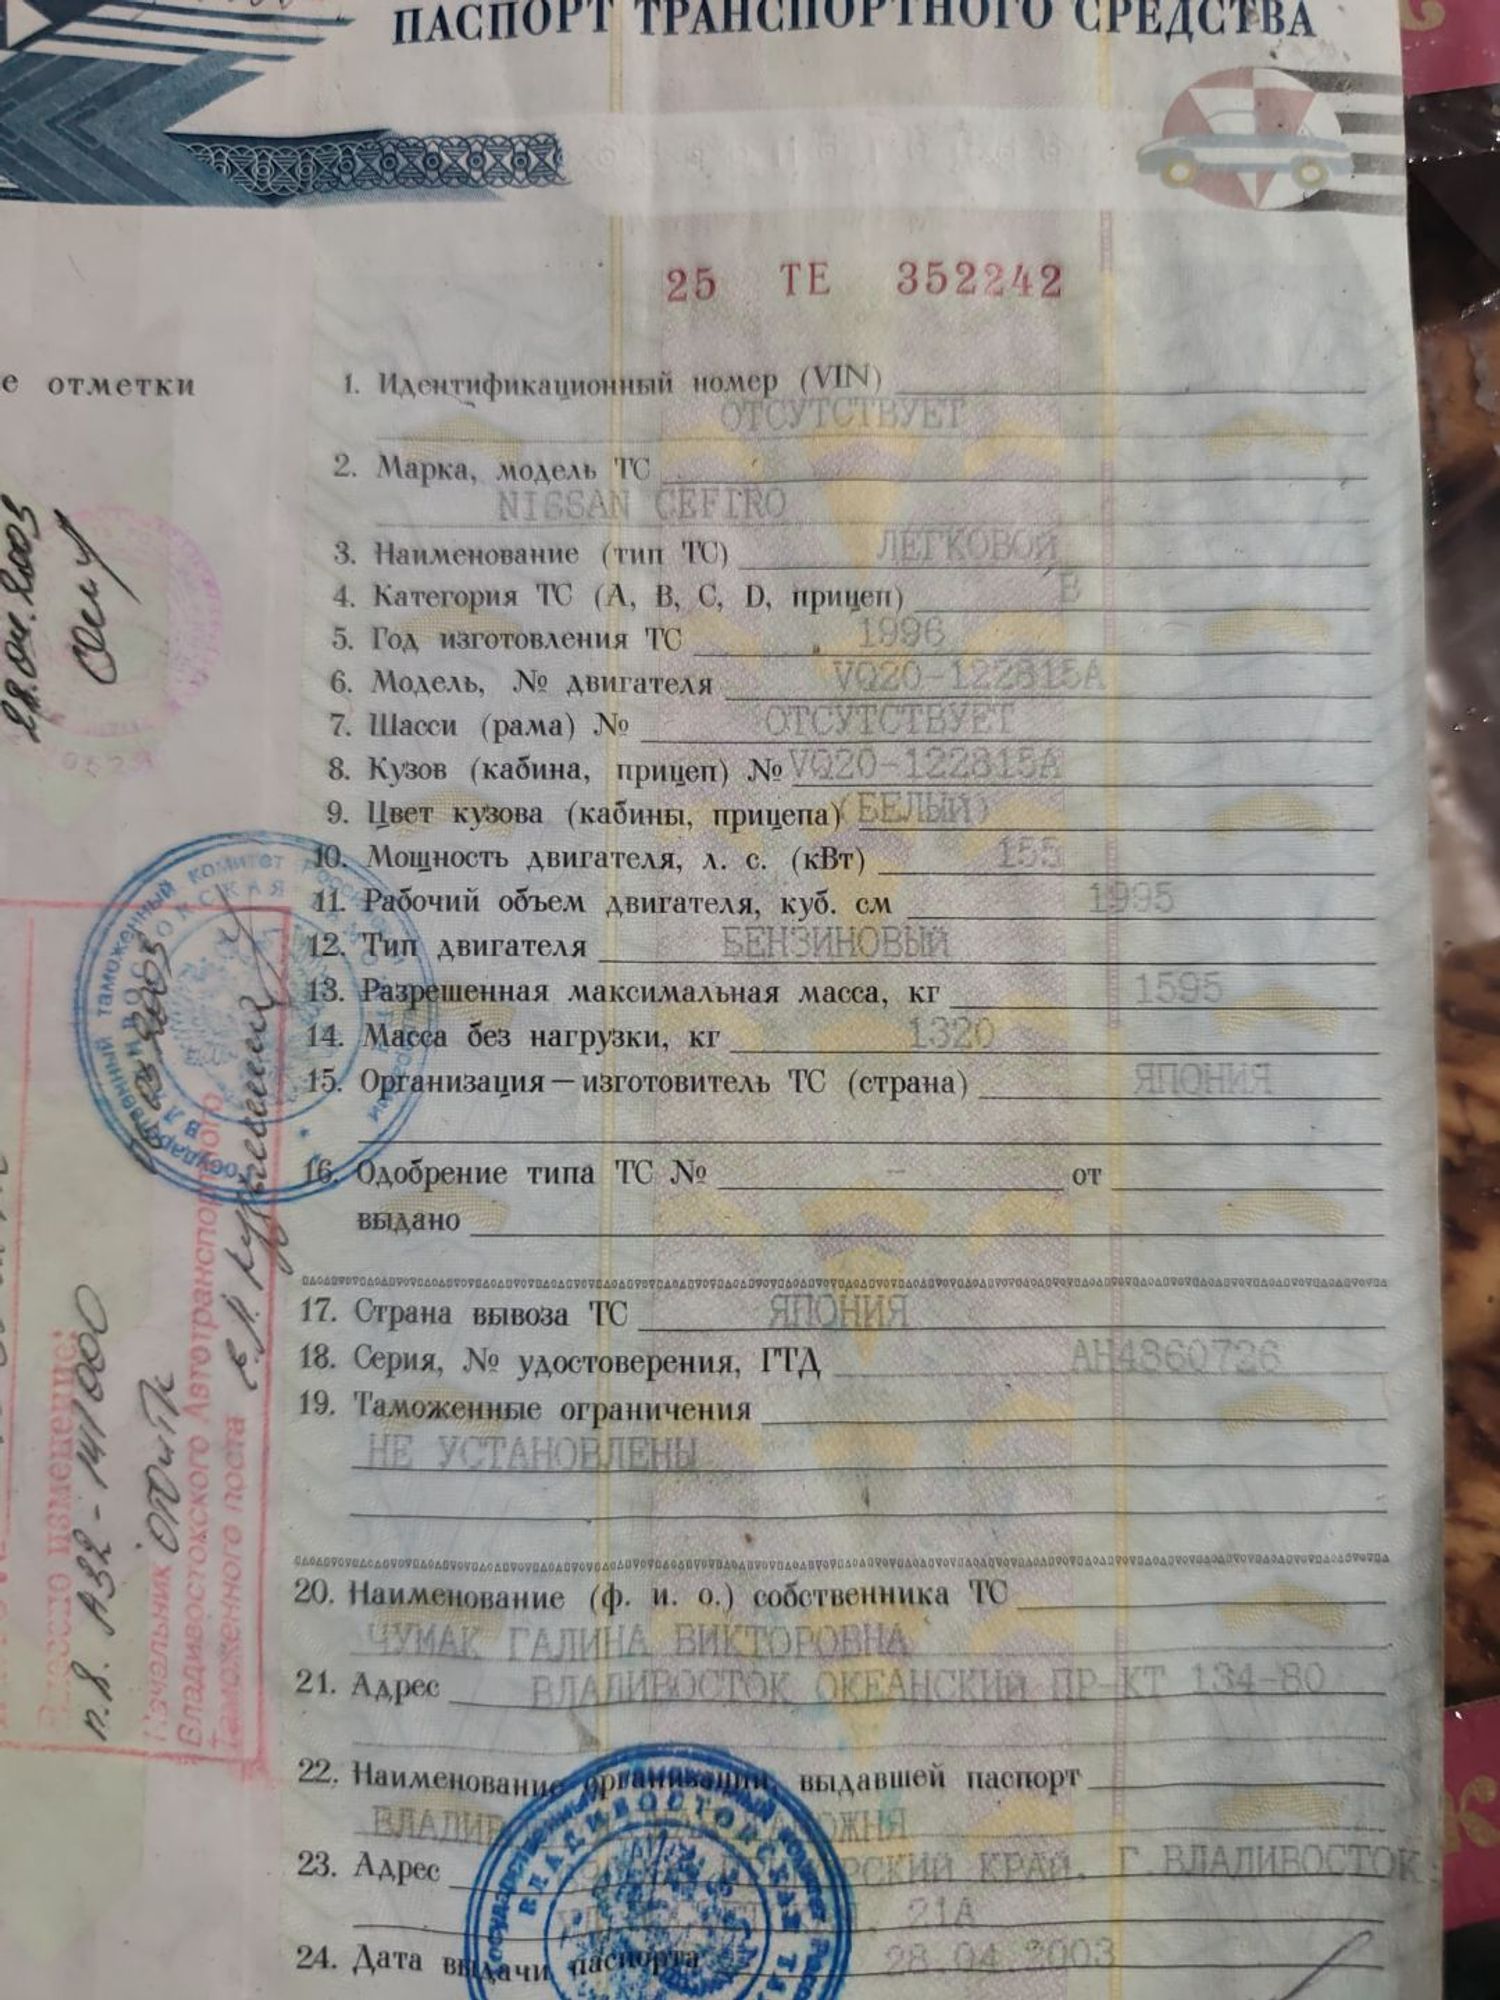 ПАСПОРТ ТРАНСПОРТНОГО СРЕДСТВА
25 ТЕ 352242
е отметки
1. Идентификационный номер (VIN)
ОТСУТСТВУЕТ
2. Марка, модель ТС
NISSAN CEFIRO
3. Наименование (тип ТС) ЛЕГКОВОЙ
4. Категория ТС (А, В, С, D, прицеп) В
5. Год изготовления ТС 1996
6. Модель, № двигателя VQ20-122815A
7. Шасси (рама) № ОТСУТСТВУЕТ
8. Кузов (кабина, прицеп) № VQ20-122815A
9. Цвет кузова (кабины, прицепа) (БЕЛЫЙ)
10. Мощность двигателя, л. с. (кВт) 155
11. Рабочий объем двигателя, куб. см 1995
12. Тип двигателя БЕНЗИНОВЫЙ
13. Разрешенная максимальная масса, кг 1595
14. Масса без нагрузки, кг 1320
15. Организация — изготовитель ТС (страна) ЯПОНИЯ
16. Одобрение типа ТС № - от
выдано
17. Страна вывоза ТС ЯПОНИЯ
18. Серия, № удостоверения, ГТД АН4360726
19. Таможенные ограничения
НЕ УСТАНОВЛЕНЫ
20. Наименование (ф. и. о.) собственника ТС
ЧУМАК ГАЛИНА ВИКТОРОВНА
21. Адрес ВЛАДИВОСТОК ОКЕАНСКИЙ ПР-КТ 134-80
22. Наименование организации, выдавшей паспорт
23. Адрес КРАЙ, Г.ВЛАДИВОСТОК,
21А
24. Дата выдачи паспорта 28.04.2003
28.04.2003
Внесено изменение:
п.8. А32-141000
Начальник ОТОиТК
Владивостокского Автотранспортного
таможенного поста
ГОСУДАРСТВЕННЫЙ ТАМОЖЕННЫЙ КОМИТЕТ
ВЛАДИВОСТОКСКАЯ